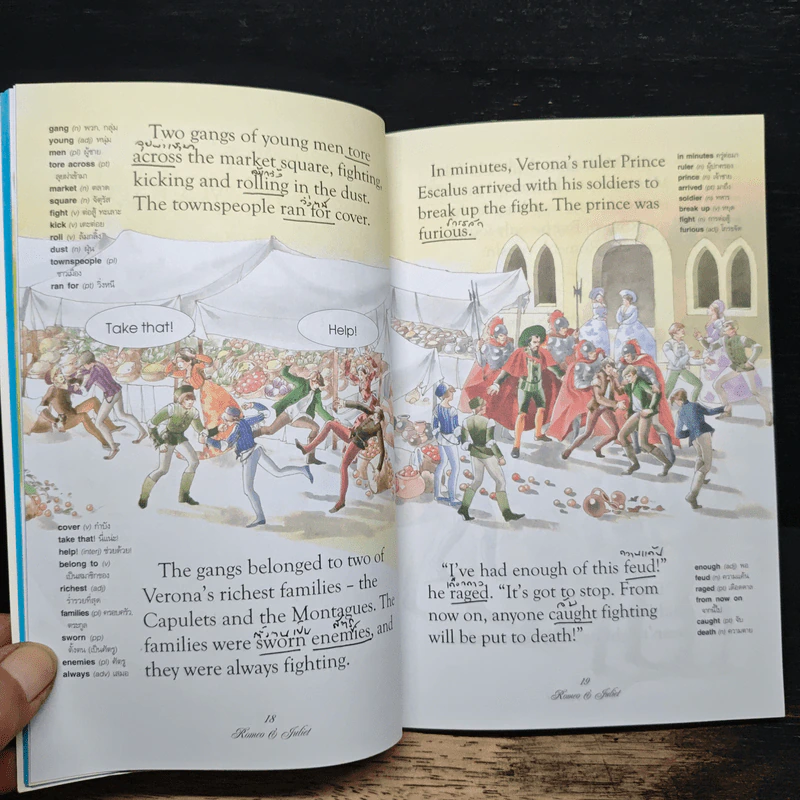 gang (n) พวก, กลุ่ม
young (adj) หนุ่ม
men (pl) ผู้ชาย
tore across (pt)
ลุยฝ่าเข้ามา
market (n) ตลาด
square (n) จัตุรัส
fight (v) ต่อสู้ ทะเลาะ
kick (v) เตะต่อย
roll (v) ล้มกลิ้ง
dust (n) ฝุ่น
townspeople (pl)
ชาวเมือง
ran for (pt) วิ่งหนี
Two gangs of young men tore
across the market square, fighting,
kicking and rolling in the dust.
The townspeople ran for cover.
วิ่งหนี
Take that!
Help!
cover (v) กำบัง
take that! นี่แน่ะ!
help! (interj) ช่วยด้วย!
belong to (v)
เป็นสมาชิกของ
richest (adj)
ร่ำรวยที่สุด
families (pl) ครอบครัว,
ตระกูล
sworn (pp)
ตั้งตน (เป็นศัตรู)
enemies (pl) ศัตรู
always (adv) เสมอ
The gangs belonged to two of
Verona's richest families – the
Capulets and the Montagues. The
families were sworn enemies, and
they were always fighting.
18
Romeo & Juliet
In minutes, Verona's ruler Prince
Escalus arrived with his soldiers to
break up the fight. The prince was
furious.
in minutes ครู่ต่อมา
ruler (n) ผู้ปกครอง
prince (n) เจ้าชาย
arrived (pt) มาถึง
soldier (n) ทหาร
break up (v) หยุด
fight (n) การต่อสู้
furious (adj) โกรธจัด
"I've had enough of this feud!"
he raged. "It's got to stop. From
now on, anyone caught fighting
will be put to death!"
enough (adj) พอ
feud (n) ความแค้น
raged (pt) เดือดดาล
from now on
จากนี้ไป
caught (pt) จับ
death (n) ความตาย
19
Romeo & Juliet